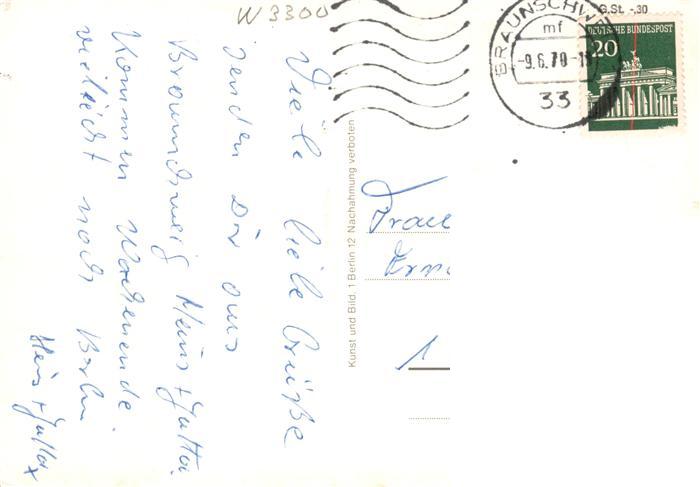 W 3300
Viele liebe Grüße
senden Dir aus
Braunschweig Heinz + Jutta.
Kommen Wochenende
vielleicht noch Berlin
Heinz + Jutta
Kunst und Bild, 1 Berlin 12 Nachahmung verboten
BRAUNSCHW
mf
-9.6.70-1
33
G.St. -.30
DEUTSCHE BUNDESPOST
20
Frau
1